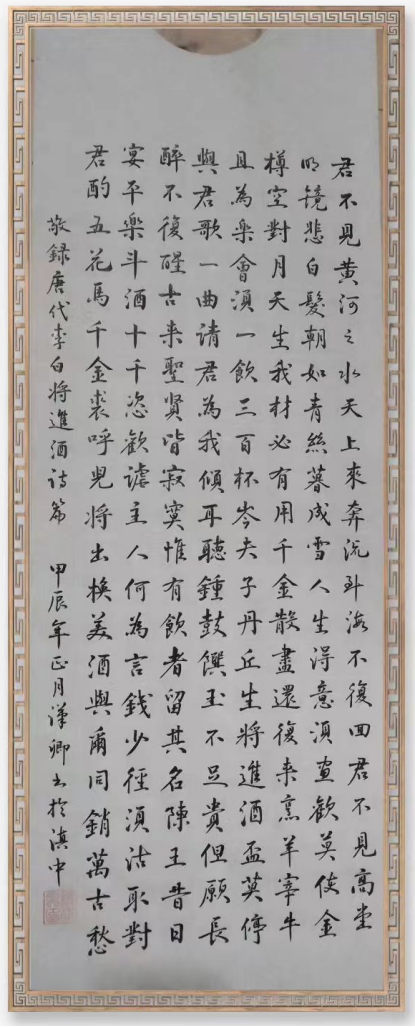 君不見黄河之水天上來奔流到海不復回君不見高堂
明鏡悲白髮朝如青絲暮成雪人生得意須盡歡莫使金
樽空對月天生我材必有用千金散盡還復来烹羊宰牛
且為樂會須一飲三百杯岑夫子丹丘生將進酒盃莫停
與君歌一曲請君為我傾耳聽鍾鼓饌玉不足貴但願長
醉不復醒古来聖賢皆寂寞惟有飲者留其名陳王昔日
宴平樂斗酒十千恣歡謔主人何為言錢少徑須沽取對
君酌五花馬千金裘呼兒將出換美酒與爾同銷萬古愁
敬録唐代李白將進酒诗篇 甲辰年正月漢卿书於滇中